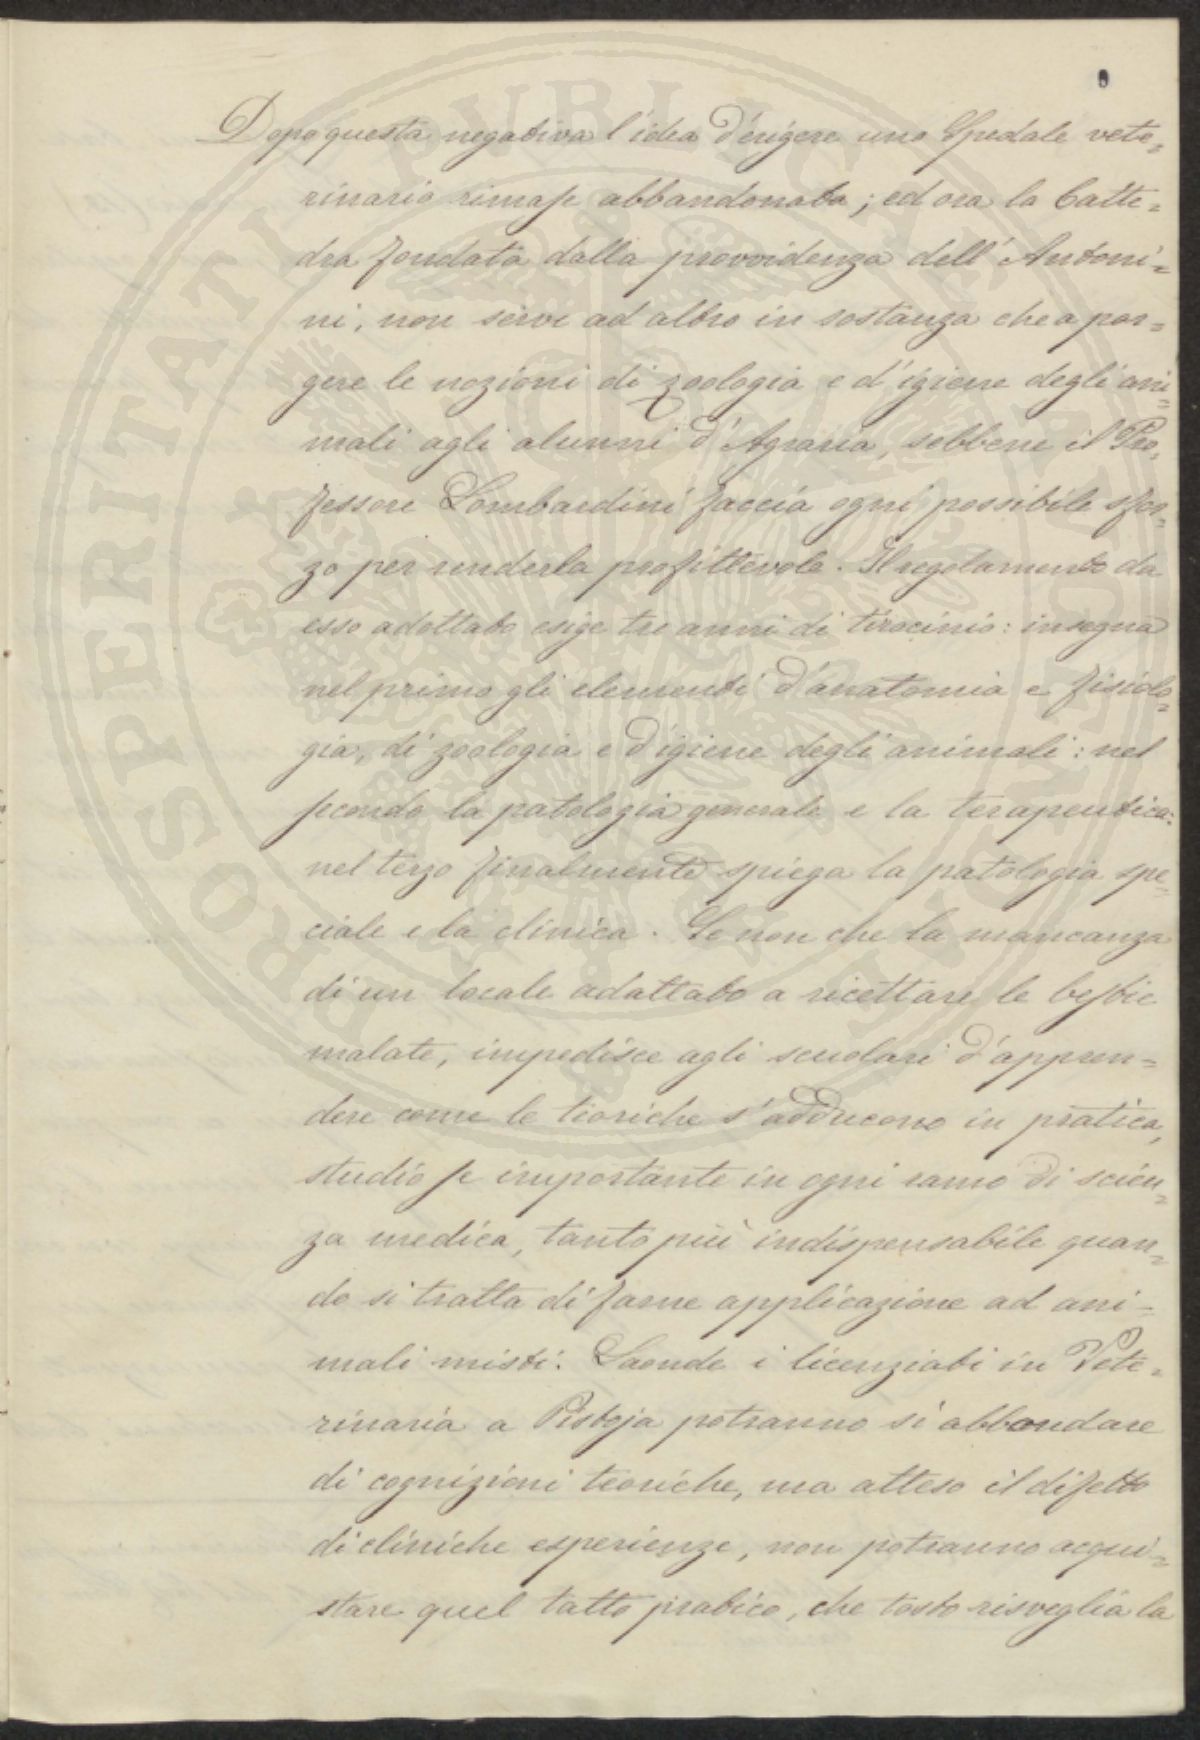 Dopo questa negativa l'idea d'erigere uno Spedale vete=
rinario rimase abbandonata; ed ora la Catte=
dra fondata dalla provvidenza dell'Antoni=
ni, non serve ad altro in sostanza che a por=
gere le nozioni di zoologia e d'igiene degli ani=
mali agli alunni d'Agraria, sebbene il Pro=
fessore Lombardini faccia ogni possibile sfor=
zo per renderla profittevole. Il regolamento da
esso adottato esige tre anni di tirocinio: insegna
nel primo gli elementi d'anatomia e fisiolo=
gia, di zoologia e d'igiene degli animali: nel
secondo la patologia generale e la terapeutica:
nel terzo finalmente spiega la patologia spe=
ciale e la clinica. Se non che la mancanza
di un locale adattato a ricettare le bestie
malate, impedisce agli scuolari d'appren=
dere come le tioriche s'adducono in pratica,
studio se importante in ogni ramo di scien=
za medica, tanto più indispensabile quan=
do si tratta di farne applicazione ad ani=
mali misti. Laonde i licenziati in Vete=
rinaria a Pistoja potranno sì abbondare
di cognizioni teoriche, ma atteso il difetto
di cliniche esperienze, non potranno acqui=
stare quel tatto pratico, che tosto risveglia la
PROSPERITATI PUBLICAE AUGENDAE